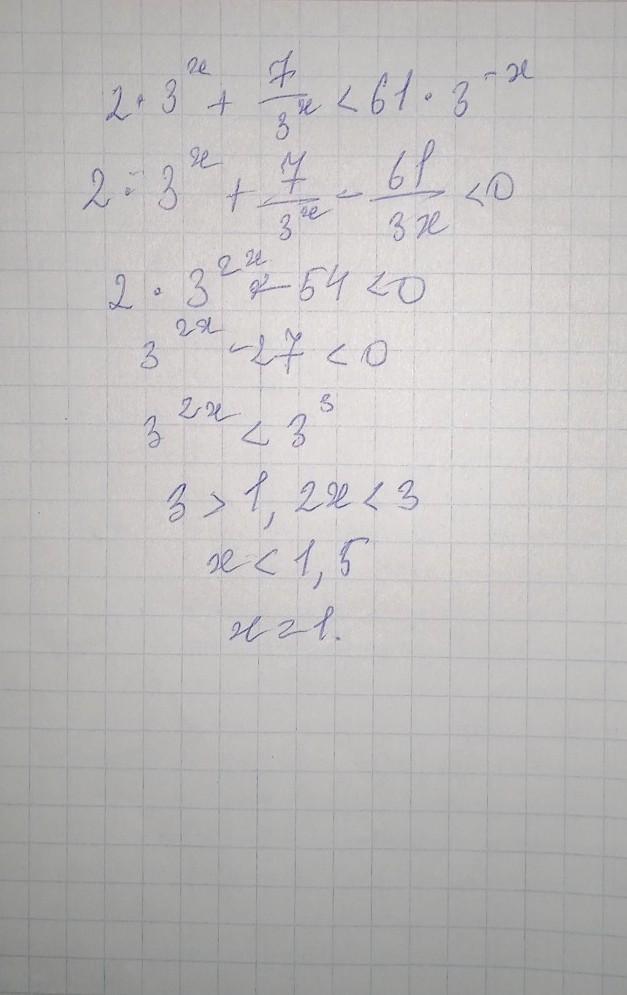 2 · 3^x + 7/3^x < 61 · 3^-x
2 · 3^x + 7/3^x - 61/3x < 0
2 · 3^2x - 54 < 0
3^2x - 27 < 0
3^2x < 3^3
3 > 1, 2x < 3
x < 1,5
x = 1.